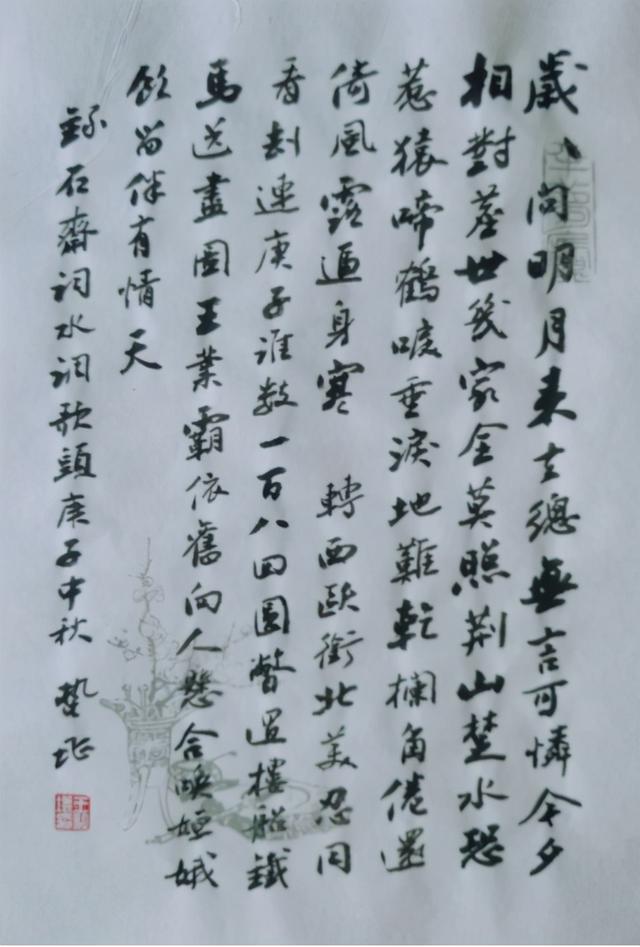 歲丶问明月来去總無言可憐今夕
相對塵世幾家全莫照荆山楚水恐
惹猿啼鶴唳垂淚地難乾欄角倦還
倚風露逼身寒 轉西歐衝北美忍同
看刦連庚子誰数一百八回圓瞥過樓船鐵
馬送盡圖王業霸依舊向人懸合喚姮娥
飲留伴有情天
石齋词水调歌頭庚子中秋